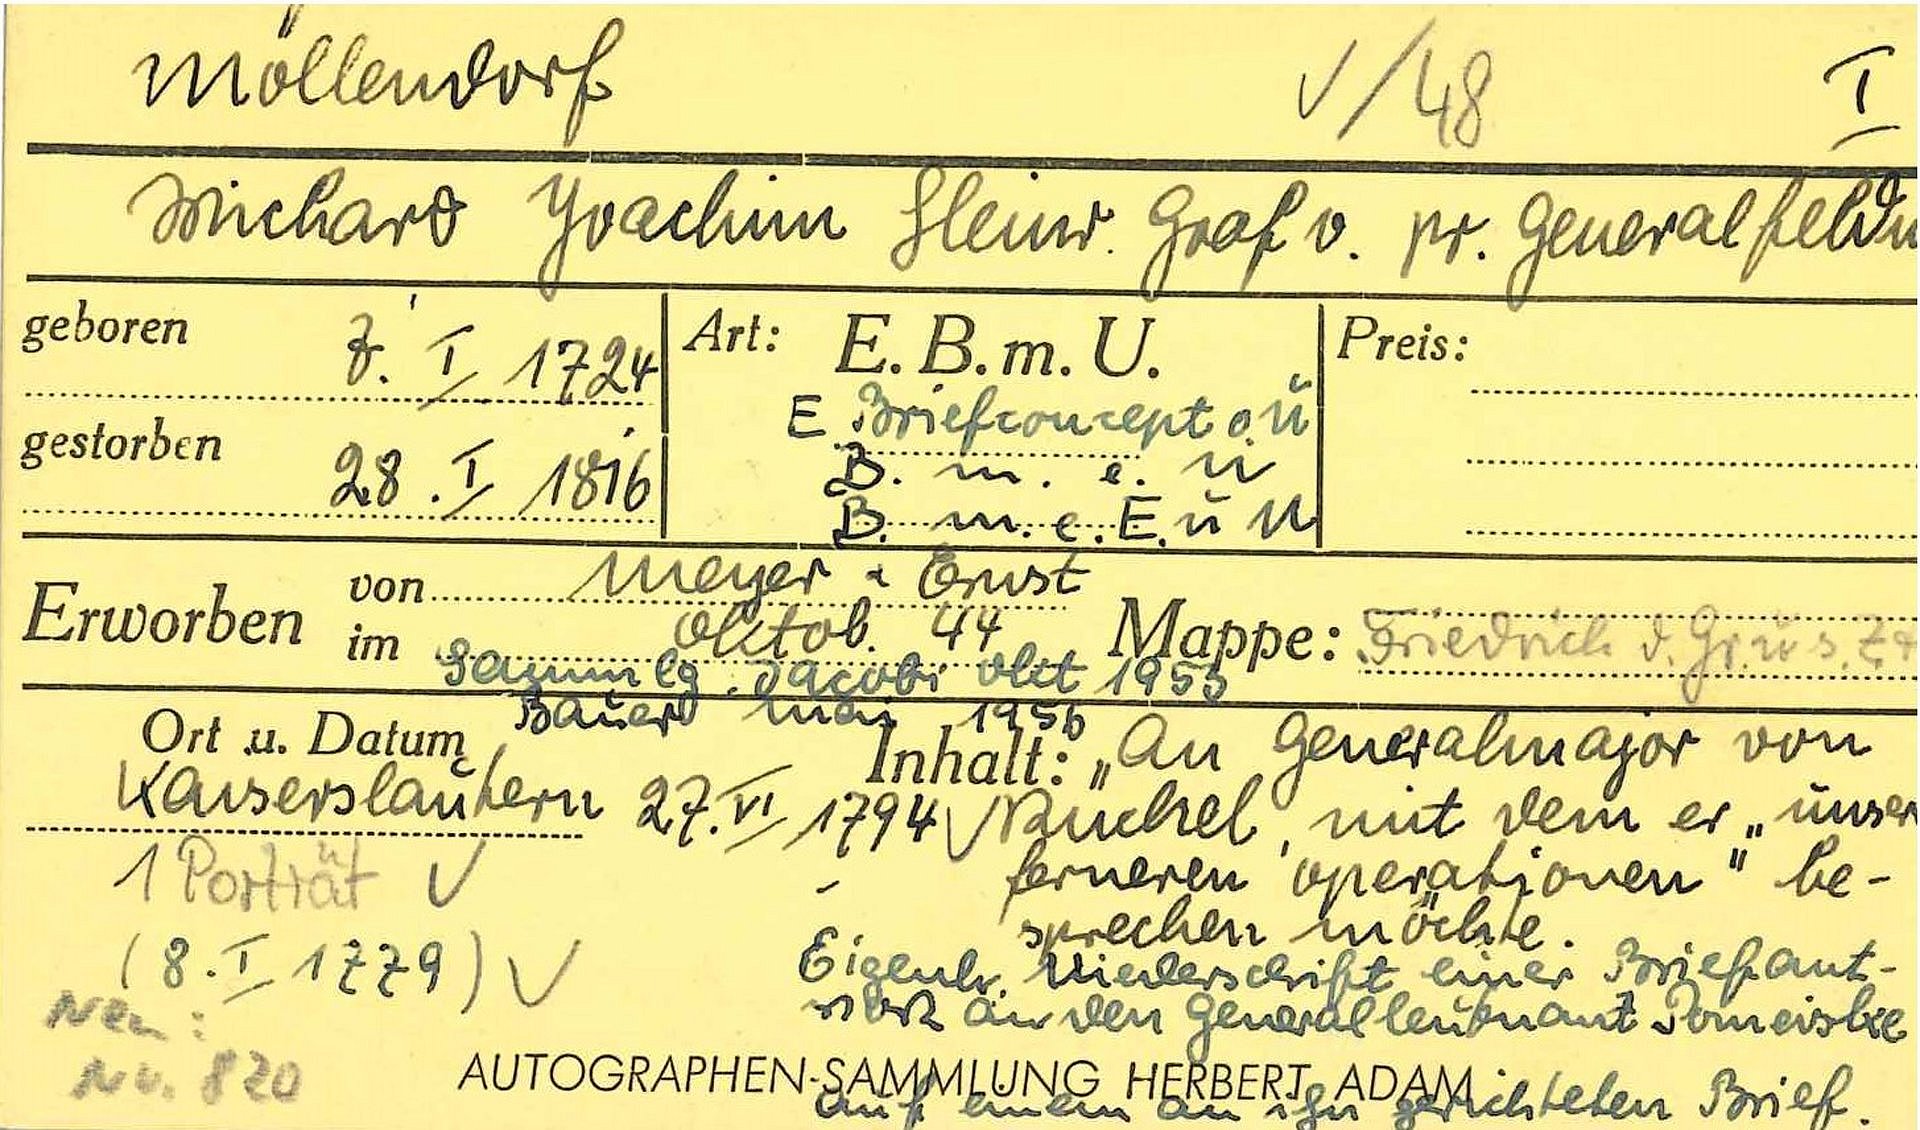 Möllendorf √/48 I
Wichard Joachim Heinr. Graf v. pr. Generalfeldm
geboren 7. I 1724 Art: E. B. m. U. Preis:
E Briefconcept o. U
gestorben 28. I 1816 B. m. e. U
B. m. e. E. u U
Erworben von Meyer & Ernst
im Oktob. 44 Mappe: Friedrich d. Gr u s. Zt
Sammlg. Jacobi Okt 1953
Bauer Mai 1956
Ort u. Datum Inhalt: „An Generalmajor von
Kaiserslautern 27. VI 1794 √ Rüchel, mit dem er „unser
1 Porträt √ ferneren operationen" be-
sprechen möchte.
(8. I 1779) √ Eigenh. Niederschrift einer Briefant-
Neu: wort an den Generalleutnant
Nr. 820
AUTOGRAPHEN-SAMMLUNG HERBERT ADAM
auf einem an ihn gerichteten Brief.